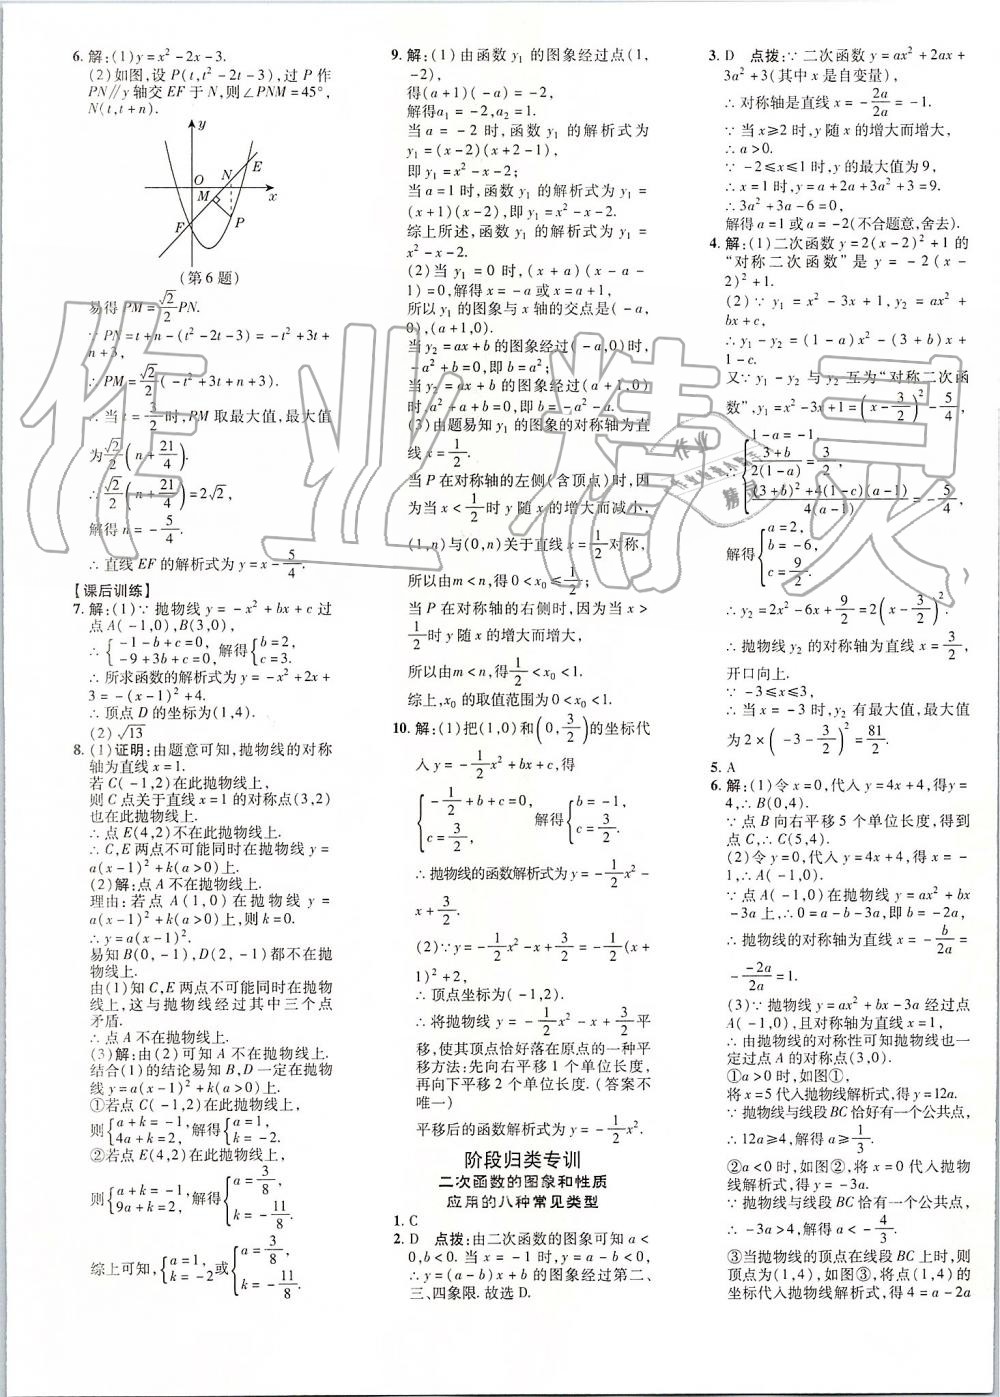 6. 解:(1)y=x²-2x-3.
(2)如图,设 P(t,t²-2t-3),过 P 作
PN∥y轴交EF于N,则∠PNM=45°,
N(t,t+n).
y
E
O
N
M
x
F
P
(第6题)
易得 PM=√2/2 PN.
∵ PN=t+n-(t²-2t-3)=-t²+3t+
n+3,
∴ PM=√2/2(-t²+3t+n+3).
∴ 当 t=3/2 时,PM 取最大值,最大值
为 √2/2(n+21/4).
∴ √2/2(n+21/4)=2√2,
解得 n=-5/4.
∴ 直线 EF 的解析式为 y=x-5/4.
【课后训练】
7. 解:(1)∵ 抛物线 y=-x²+bx+c 过
点A(-1,0),B(3,0),
∴ {-1-b+c=0, -9+3b+c=0, 解得{b=2, c=3.
∴ 所求函数的解析式为y=-x²+2x+
3=-(x-1)²+4.
∴ 顶点 D 的坐标为(1,4).
(2) √13
8. (1)证明:由题意可知,抛物线的对称
轴为直线x=1.
若 C(-1,2)在此抛物线上,
则 C 点关于直线x=1的对称点(3,2)
也在此抛物线上.
∴ 点 E(4,2)不在此抛物线上.
∴ C,E 两点不可能同时在抛物线 y=
a(x-1)²+k(a>0)上.
(2)解:点 A 不在抛物线上.
理由:若点 A(1,0)在抛物线 y=
a(x-1)²+k(a>0)上,则 k=0.
∴ y=a(x-1)².
易知 B(0,-1),D(2,-1)都不在抛
物线上.
由(1)知 C,E 两点不可能同时在抛物
线上,这与抛物线经过其中三个点
矛盾.
∴ 点 A 不在抛物线上.
(3)解:由(2)可知 A 不在抛物线上.
结合(1)的结论易知 B,D 一定在抛物
线y=a(x-1)²+k(a>0)上.
①若点 C(-1,2)在此抛物线上,
则{a+k=-1, 4a+k=2, 解得{a=1, k=-2.
②若点 E(4,2)在此抛物线上,
则{a+k=-1, 9a+k=2, 解得{a=3/8, k=-11/8.
综上可知,{a=1, k=-2 或{a=3/8, k=-11/8.
9. 解:(1)由函数 y₁ 的图象经过点(1,
-2),
得(a+1)(-a)=-2,
解得a₁=-2,a₂=1.
当 a=-2 时,函数 y₁ 的解析式为
y₁=(x-2)(x+2-1),
即 y₁=x²-x-2;
当 a=1时,函数 y₁ 的解析式为 y₁=
(x+1)(x-2),即 y₁=x²-x-2.
综上所述,函数 y₁ 的解析式为 y₁=
x²-x-2.
(2)当 y₁=0 时,(x+a)(x-a-
1)=0,解得 x=-a 或 x=a+1,
所以 y₁ 的图象与 x 轴的交点是(-a,
0),(a+1,0).
当 y₂=ax+b 的图象经过(-a,0)时,
-a²+b=0,即 b=a²;
当 y₂=ax+b 的图象经过(a+1,0)
时,a²+a+b=0,即 b=-a²-a.
(3)由题易知 y₁ 的图象的对称轴为直
线 x=1/2.
当 P 在对称轴的左侧(含顶点)时,因
为当 x<1/2 时 y 随 x 的增大而减小,
(1,n)与(0,n)关于直线 x=1/2 对称,
所以由 m<n,得 0<x₀≤1/2;
当 P 在对称轴的右侧时,因为当 x>
1/2 时 y 随 x 的增大而增大,
所以由 m<n,得 1/2<x₀<1.
综上,x₀ 的取值范围为 0<x₀<1.
10. 解:(1)把(1,0)和(0,3/2)的坐标代
入 y=-1/2x²+bx+c,得
{-1/2+b+c=0, c=3/2, 解得{b=-1, c=3/2.
∴ 抛物线的函数解析式为 y=-1/2x²-
x+3/2.
(2)∵ y=-1/2x²-x+3/2=-1/2(x+
1)²+2,
∴ 顶点坐标为(-1,2).
∴ 将抛物线 y=-1/2x²-x+3/2 平
移,使其顶点恰好落在原点的一种平
移方法:先向右平移 1 个单位长度,
再向下平移 2 个单位长度.(答案不
唯一)
平移后的函数解析式为 y=-1/2x².
阶段归类专训
二次函数的图象和性质
应用的八种常见类型
1. C
2. D 点拨:由二次函数的图象可知 a<
0,b<0. 当 x=-1 时,y=a-b<0.
∴ y=(a-b)x+b 的图象经过第二、
三、四象限. 故选 D.
3. D 点拨:∵ 二次函数 y=ax²+2ax+
3a²+3(其中 x 是自变量),
∴ 对称轴是直线 x=-2a/2a=-1.
∵ 当 x≥2 时,y 随 x 的增大而增大,
∴ a>0.
∵ -2≤x≤1 时,y 的最大值为 9,
∴ x=1 时,y=a+2a+3a²+3=9.
∴ 3a²+3a-6=0,
解得 a=1 或 a=-2(不合题意,舍去).
4. 解:(1)二次函数 y=2(x-2)²+1 的
“对称二次函数”是 y=-2(x-
2)²+1.
(2)∵ y₁=x²-3x+1,y₂=ax²+
bx+c,
∴ y₁-y₂=(1-a)x²-(3+b)x+
1-c.
又∵ y₁-y₂ 与 y₁ 互为“对称二次函
数”,y₁=x²-3x+1=(x-3/2)²-5/4,
∴ {1-a=-1, (3+b)/2(1-a)=3/2, ((3+b)²+4(1-c)(a-1))/4(a-1)=-5/4,
解得{a=2, b=-6, c=9/2.
∴ y₂=2x²-6x+9/2=2(x-3/2)².
∴ 抛物线 y₂ 的对称轴为直线 x=3/2,
开口向上.
∵ -3≤x≤3,
∴ 当 x=-3 时,y₂ 有最大值,最大值
为 2×(-3-3/2)²=81/2.
5. A
6. 解:(1)令 x=0,代入 y=4x+4,得y=
4,∴ B(0,4).
∵ 点 B 向右平移 5 个单位长度,得到
点 C,∴ C(5,4).
(2)令 y=0,代入 y=4x+4,得 x=-
1,∴ A(-1,0).
∵ 点 A(-1,0)在抛物线 y=ax²+bx
-3a 上,∴ 0=a-b-3a,即 b=-2a,
∴ 抛物线的对称轴为直线 x=-b/2a=
--2a/2a=1.
(3)∵ 抛物线 y=ax²+bx-3a 经过点
A(-1,0),且对称轴为直线 x=1,
∴ 由抛物线的对称性可知抛物线也一
定过点 A 的对称点(3,0).
①a>0 时,如图①,
将 x=5 代入抛物线解析式,得 y=12a.
∵ 抛物线与线段 BC 恰好有一个公共点,
∴ 12a≥4,解得 a≥1/3.
②a<0 时,如图②,将 x=0 代入抛物
线解析式,得 y=-3a.
∵ 抛物线与线段 BC 恰有一个公共点,
∴ -3a>4,解得 a<-4/3.
③当抛物线的顶点在线段 BC 上时,则
顶点为(1,4),如图③,将点(1,4)的
坐标代入抛物线解析式,得 4=a-2a
作业精灵